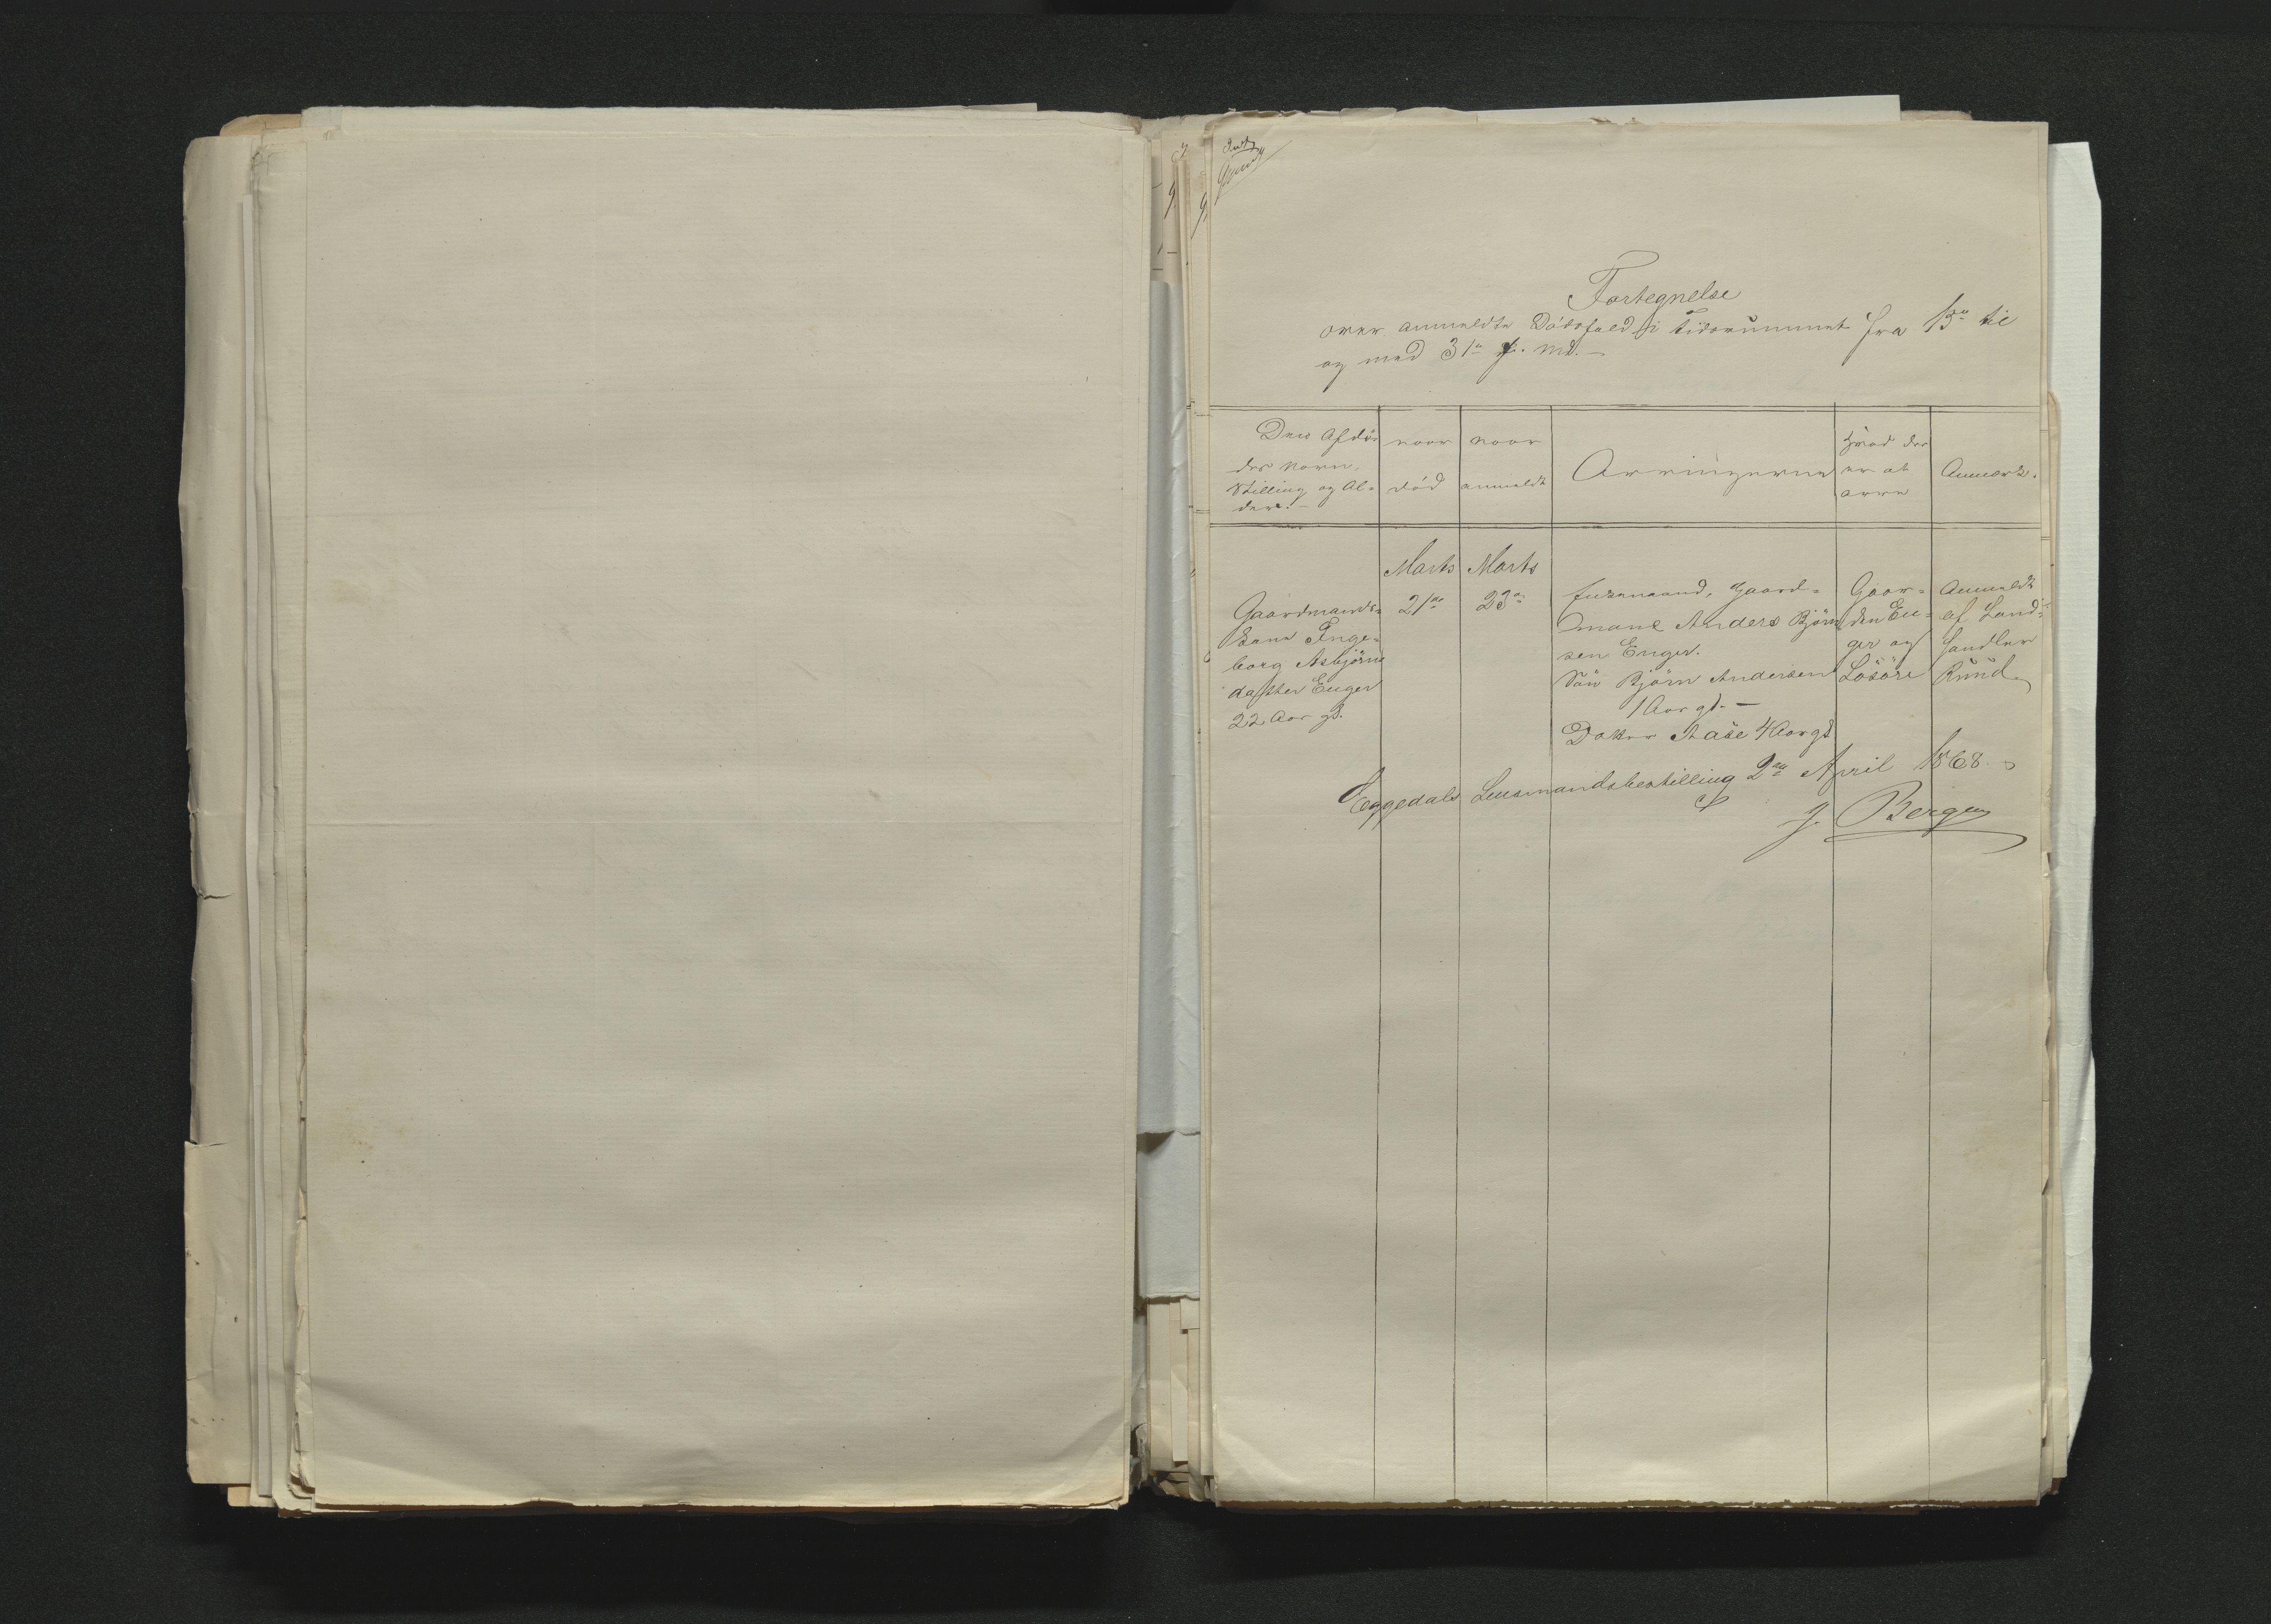 Fortegnelse
over anmeldte Dödsfald i Tidsrummet fra 15de til
og med 31te f. Md. —
Den Afdö-
des Navn,
Stilling og Al-
der. —
naar
död
naar
anmeldt
Arvingerne
Hvad der
er at
arve
Anmærk.
Gaardmands-
kone Inge-
borg Asbjörns-
datter Enger
22 Aar gl.
Marts
21de
Marts
23de
Enkemand, Gaard-
mand Anders Björn
sen Enger.
Sön Björn Andersen
1 Aar gl. —
Datter Aase 4 Aar gl
Gaar-
den En-
ger og
Lösöre
Anmeldt
af Land-
handler
Ruud
Eggedals Lensmandsbestilling 2den April 1868.
J. Bergen